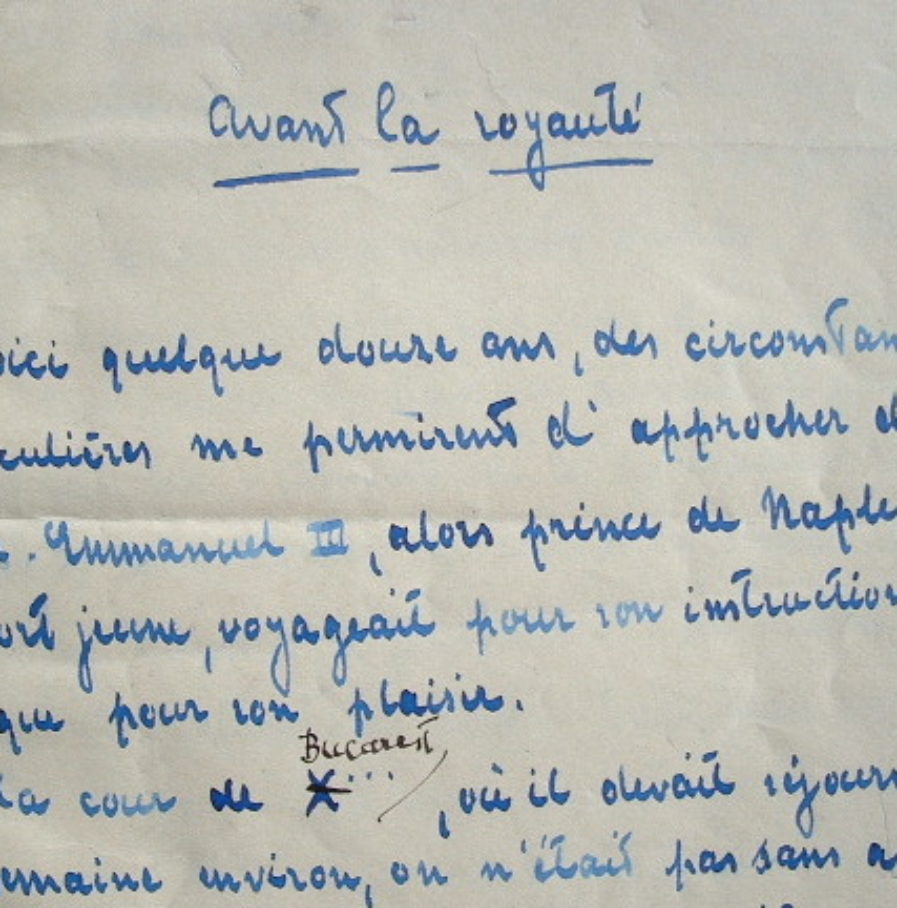 Avant la royauté
oici quelque douze ans, des circonstan
culières me permirent d'approcher d
. Emmanuel III, alors prince de Naple
ort jeune, voyageait pour son instruction
que pour son plaisir.
Bucarest
la cour de X... , où il devait séjourn
emaine environ, on n'était pas sans a